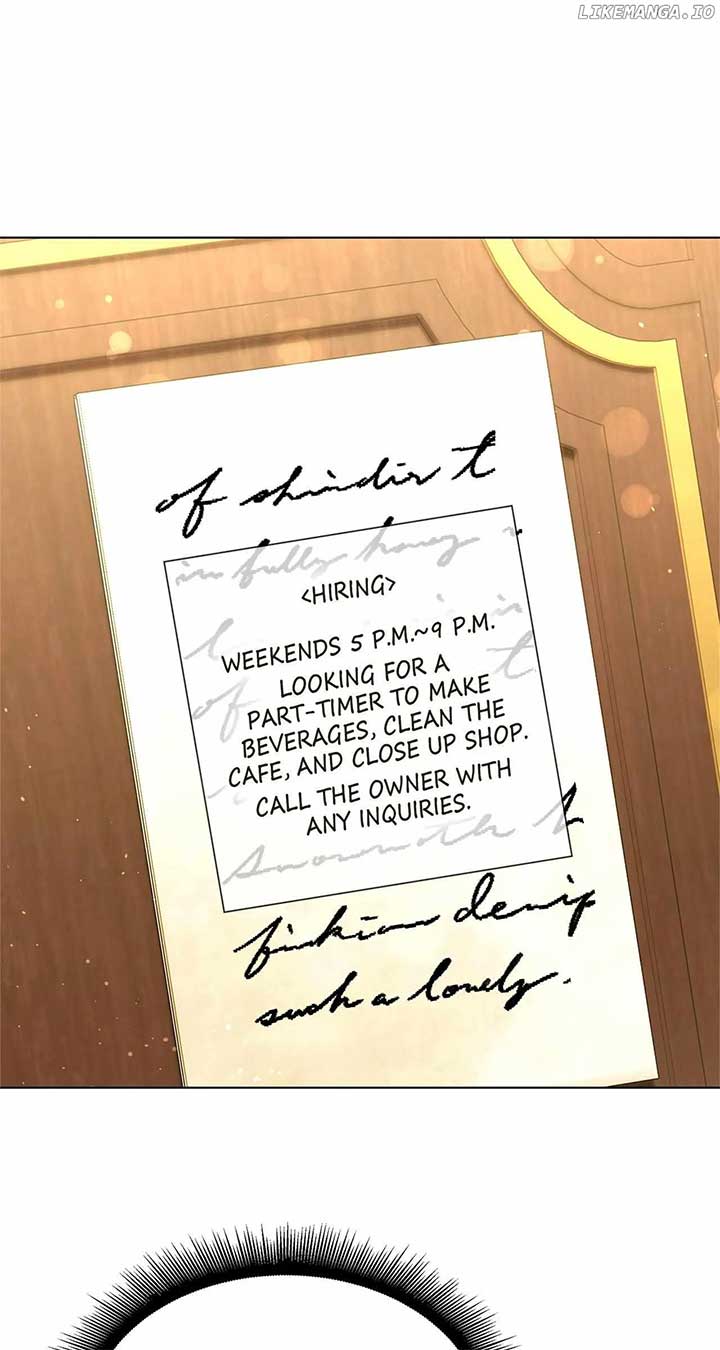 LIKEMANGA.IO
of
<HIRING>
WEEKENDS 5 P.M.~9 P.M.
LOOKING FOR A
PART-TIMER TO MAKE
BEVERAGES, CLEAN THE
CAFE, AND CLOSE UP SHOP.
CALL THE OWNER WITH
ANY INQUIRIES.
such a lonely.